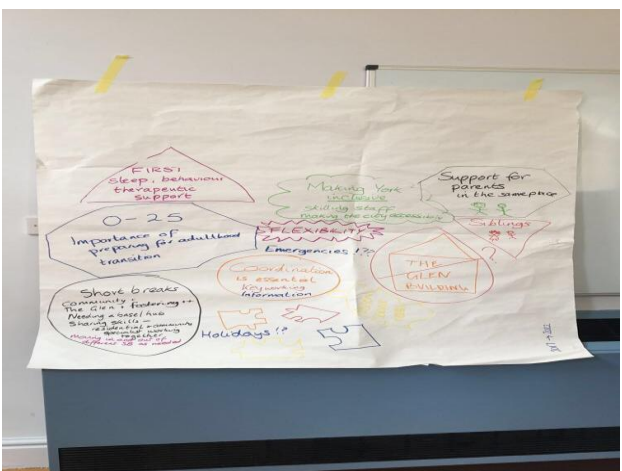 FIRST
sleep, behaviour
therapeutic
support
0-25
Importance of
preparing for adulthood
transition
Short breaks
Community
The Glen + fostering ++
Needing a base/hub
Sharing skills -
residential + community
specialist working
together
Moving in and out of
different SB as needed
Making York
inclusive
skilling staff
making the city accessible
FLEXIBILITY
Emergencies !?!
Coordination
is essential
Keyworking
Information
Holidays !?
Support for
parents
in the same place
Siblings
?
THE
GLEN
BUILDING